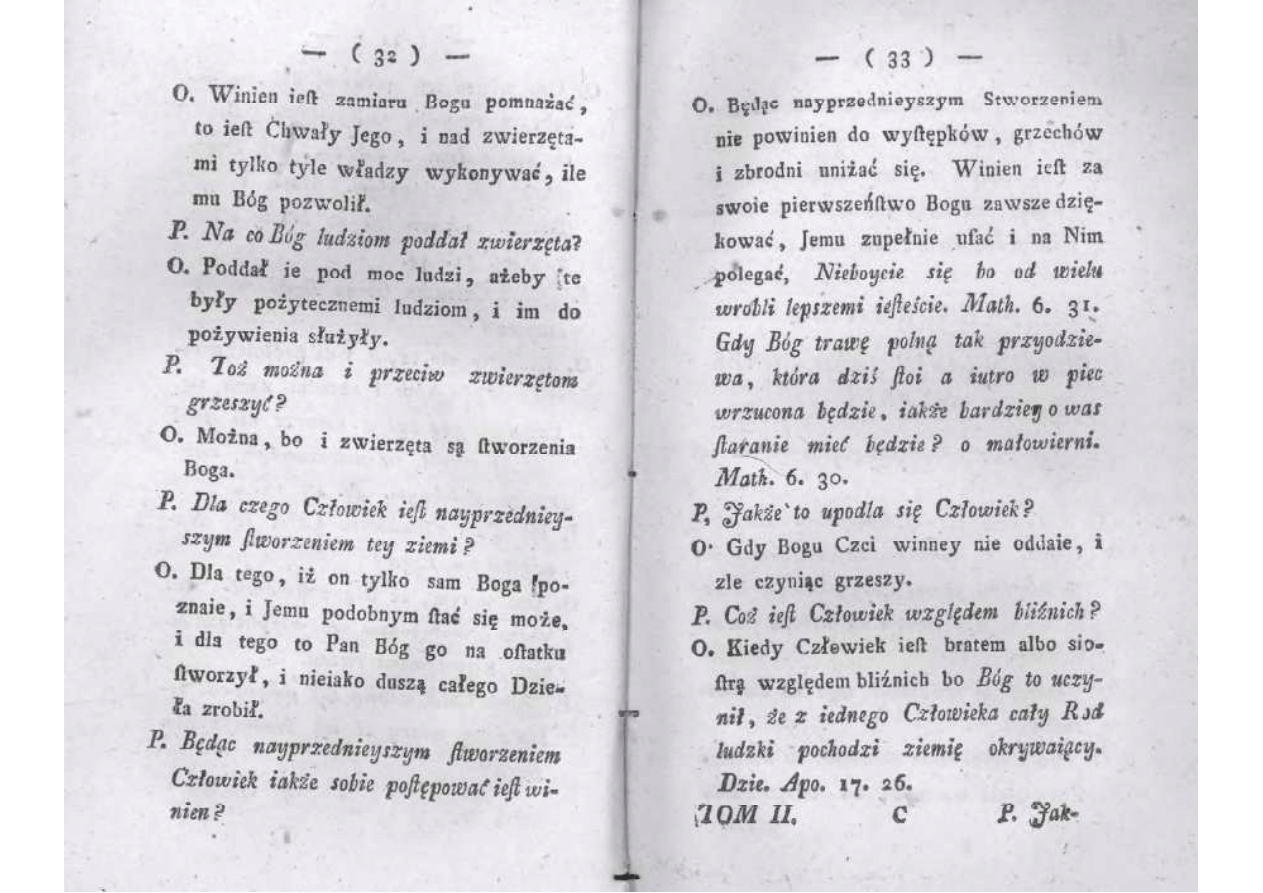 — ( 32 ) —
O. Winien ieſt zamiaru Bogu pomnażać,
to ieſt Chwały Jego, i nad zwierzęta-
mi tylko tyle władzy wykonywać, ile
mu Bóg pozwolił.
P. Na co Bóg ludziom poddał zwierzęta?
O. Poddał ie pod moc ludzi, ażeby te
były pożytecznemi ludziom, i im do
pożywienia służyły.
P. Toż można i przeciw zwierzętom
grzeszyć?
O. Można, bo i zwierzęta są ſtworzenia
Boga.
P. Dla czego Człowiek ieſt nayprzedniey-
szym ſtworzeniem tey ziemi?
O. Dla tego, iż on tylko sam Boga po-
znaie, i Jemu podobnym ſtać się może,
i dla tego to Pan Bóg go na oſtatku
ſtworzył, i nieiako duszą całego Dzie-
ła zrobił.
P. Będąc nayprzednieyszym ſtworzeniem
Człowiek iakże sobie poſtępować ieſt wi-
nien?
— ( 33 ) —
O. Będąc nayprzednieyszym Stworzeniem
nie powinien do wyſtępków, grzechów
i zbrodni uniżać się. Winien ieſt za
swoie pierwszeńſtwo Bogu zawsze dzię-
kować, Jemu zupełnie ufać i na Nim
polegać, Nieboycie się bo od wielu
wrobli lepszemi ieſteście. Math. 6. 31.
Gdy Bóg trawę polną tak przyodzie-
wa, która dziś ſtoi a iutro w piec
wrzucona będzie, iakże bardziey o was
ſtaranie mieć będzie? o małowierni.
Math. 6. 30.
P, Jakże to upodla się Człowiek?
O· Gdy Bogu Czci winney nie oddaie, i
zle czyniąc grzeszy.
P. Coż ieſt Człowiek względem bliźnich?
O. Kiedy Człowiek ieſt bratem albo sio-
ſtrą względem bliźnich bo Bóg to uczy-
nił, że z iednego Człowieka cały Rod
ludzki pochodzi ziemię okrywaiący.
Dzie. Apo. 17. 26.
TOM II. C P. Jak-